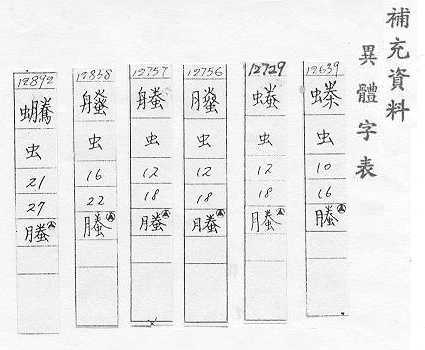 補充資料
異體字表
12639
虫
10
16
螣
12729
虫
12
18
螣
12756
虫
12
18
螣
12757
虫
12
18
螣
12858
虫
16
22
螣
12892
虫
21
27
螣